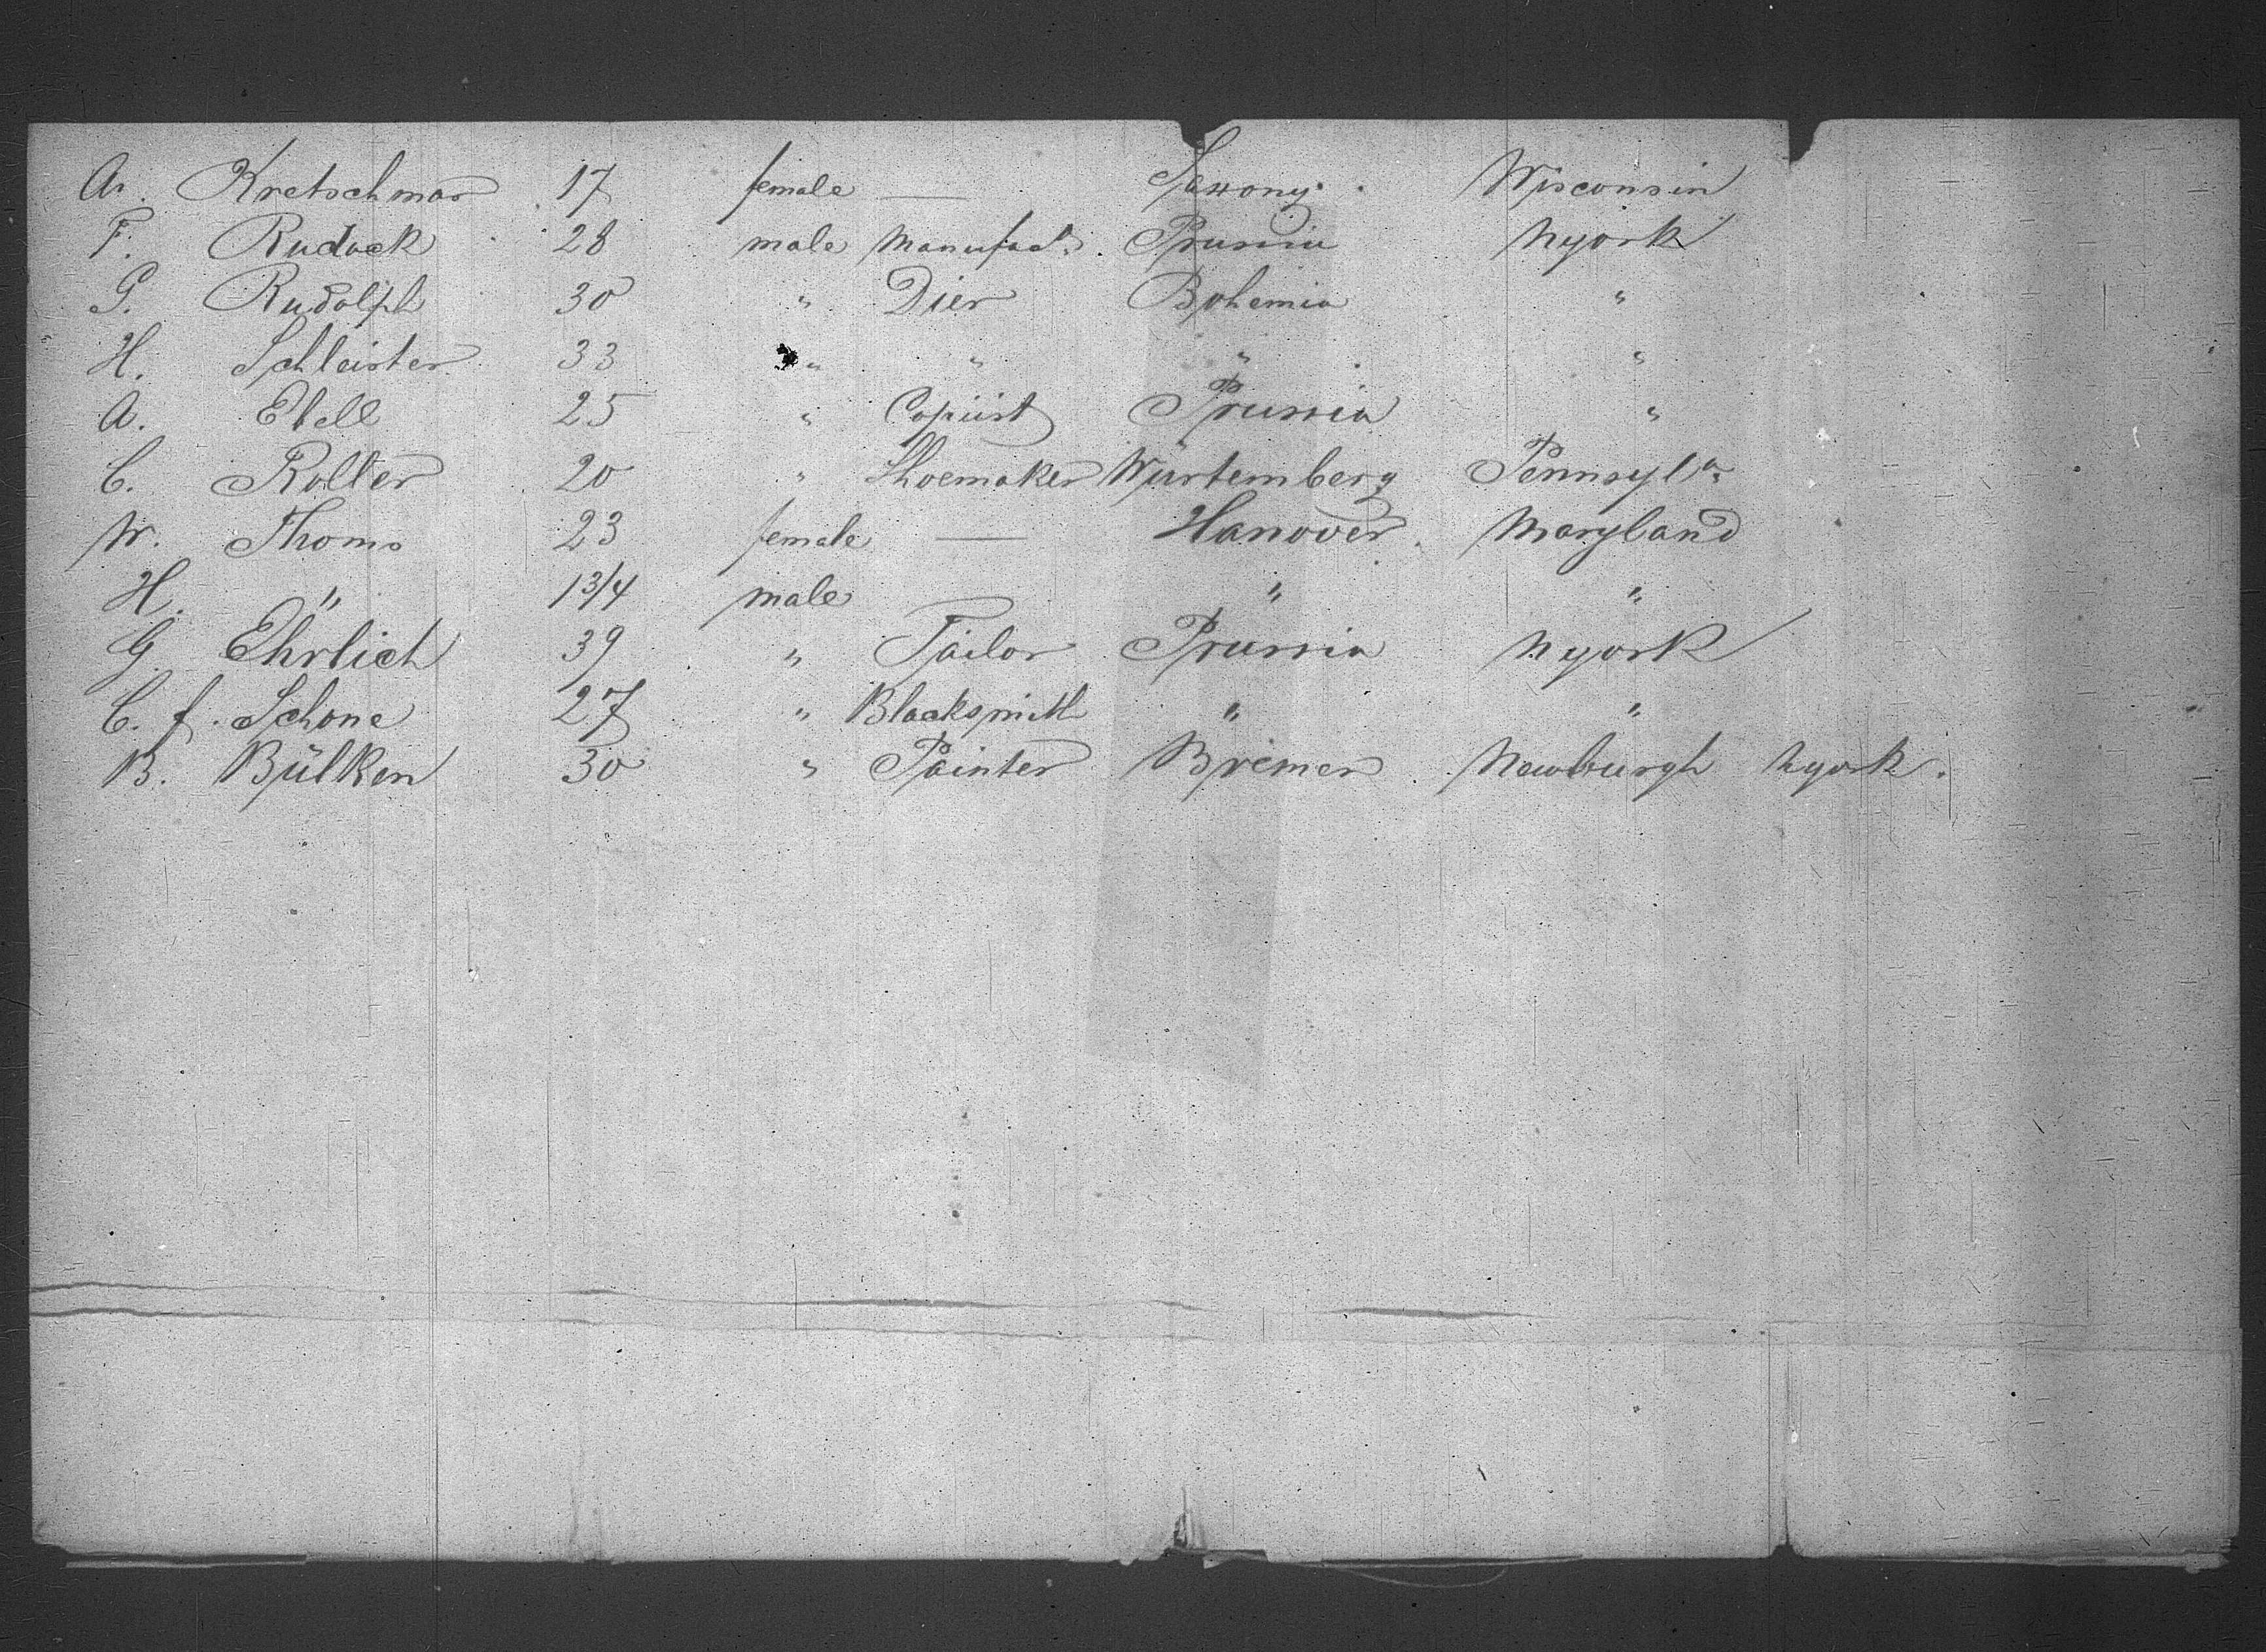 A. Kretschmar 17 female — Saxony. Wisconsin
F. Rudack 28 male Manufact. Prussia Nyork
G. Rudolph 30 " Dier Bohemia "
H. Schleister 33 " " " "
A. Ebell 25 " Copiist Prussia "
C. Roller 20 " Shoemaker Würtemberg Pennsyl.a
W. Thoms 23 female — Hanover. Maryland
H. " 13/4 male " "
G. Ehrlich 39 " Tailor Prussia Nyork
C. f. Schone 27 " Blacksmith " "
B. Bülken 30 " Painter Bremen Newburgh Nyork.